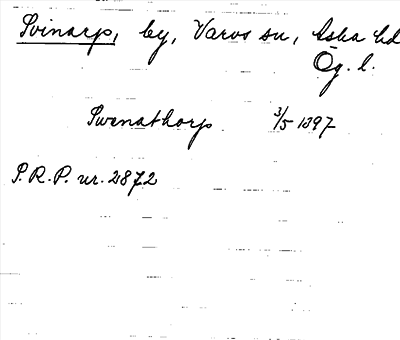 Svinarp, by, Varvs sn, Aska hd
Ög. l.
Swenathorp 3/5 1397
P.R.P. nr. 2872